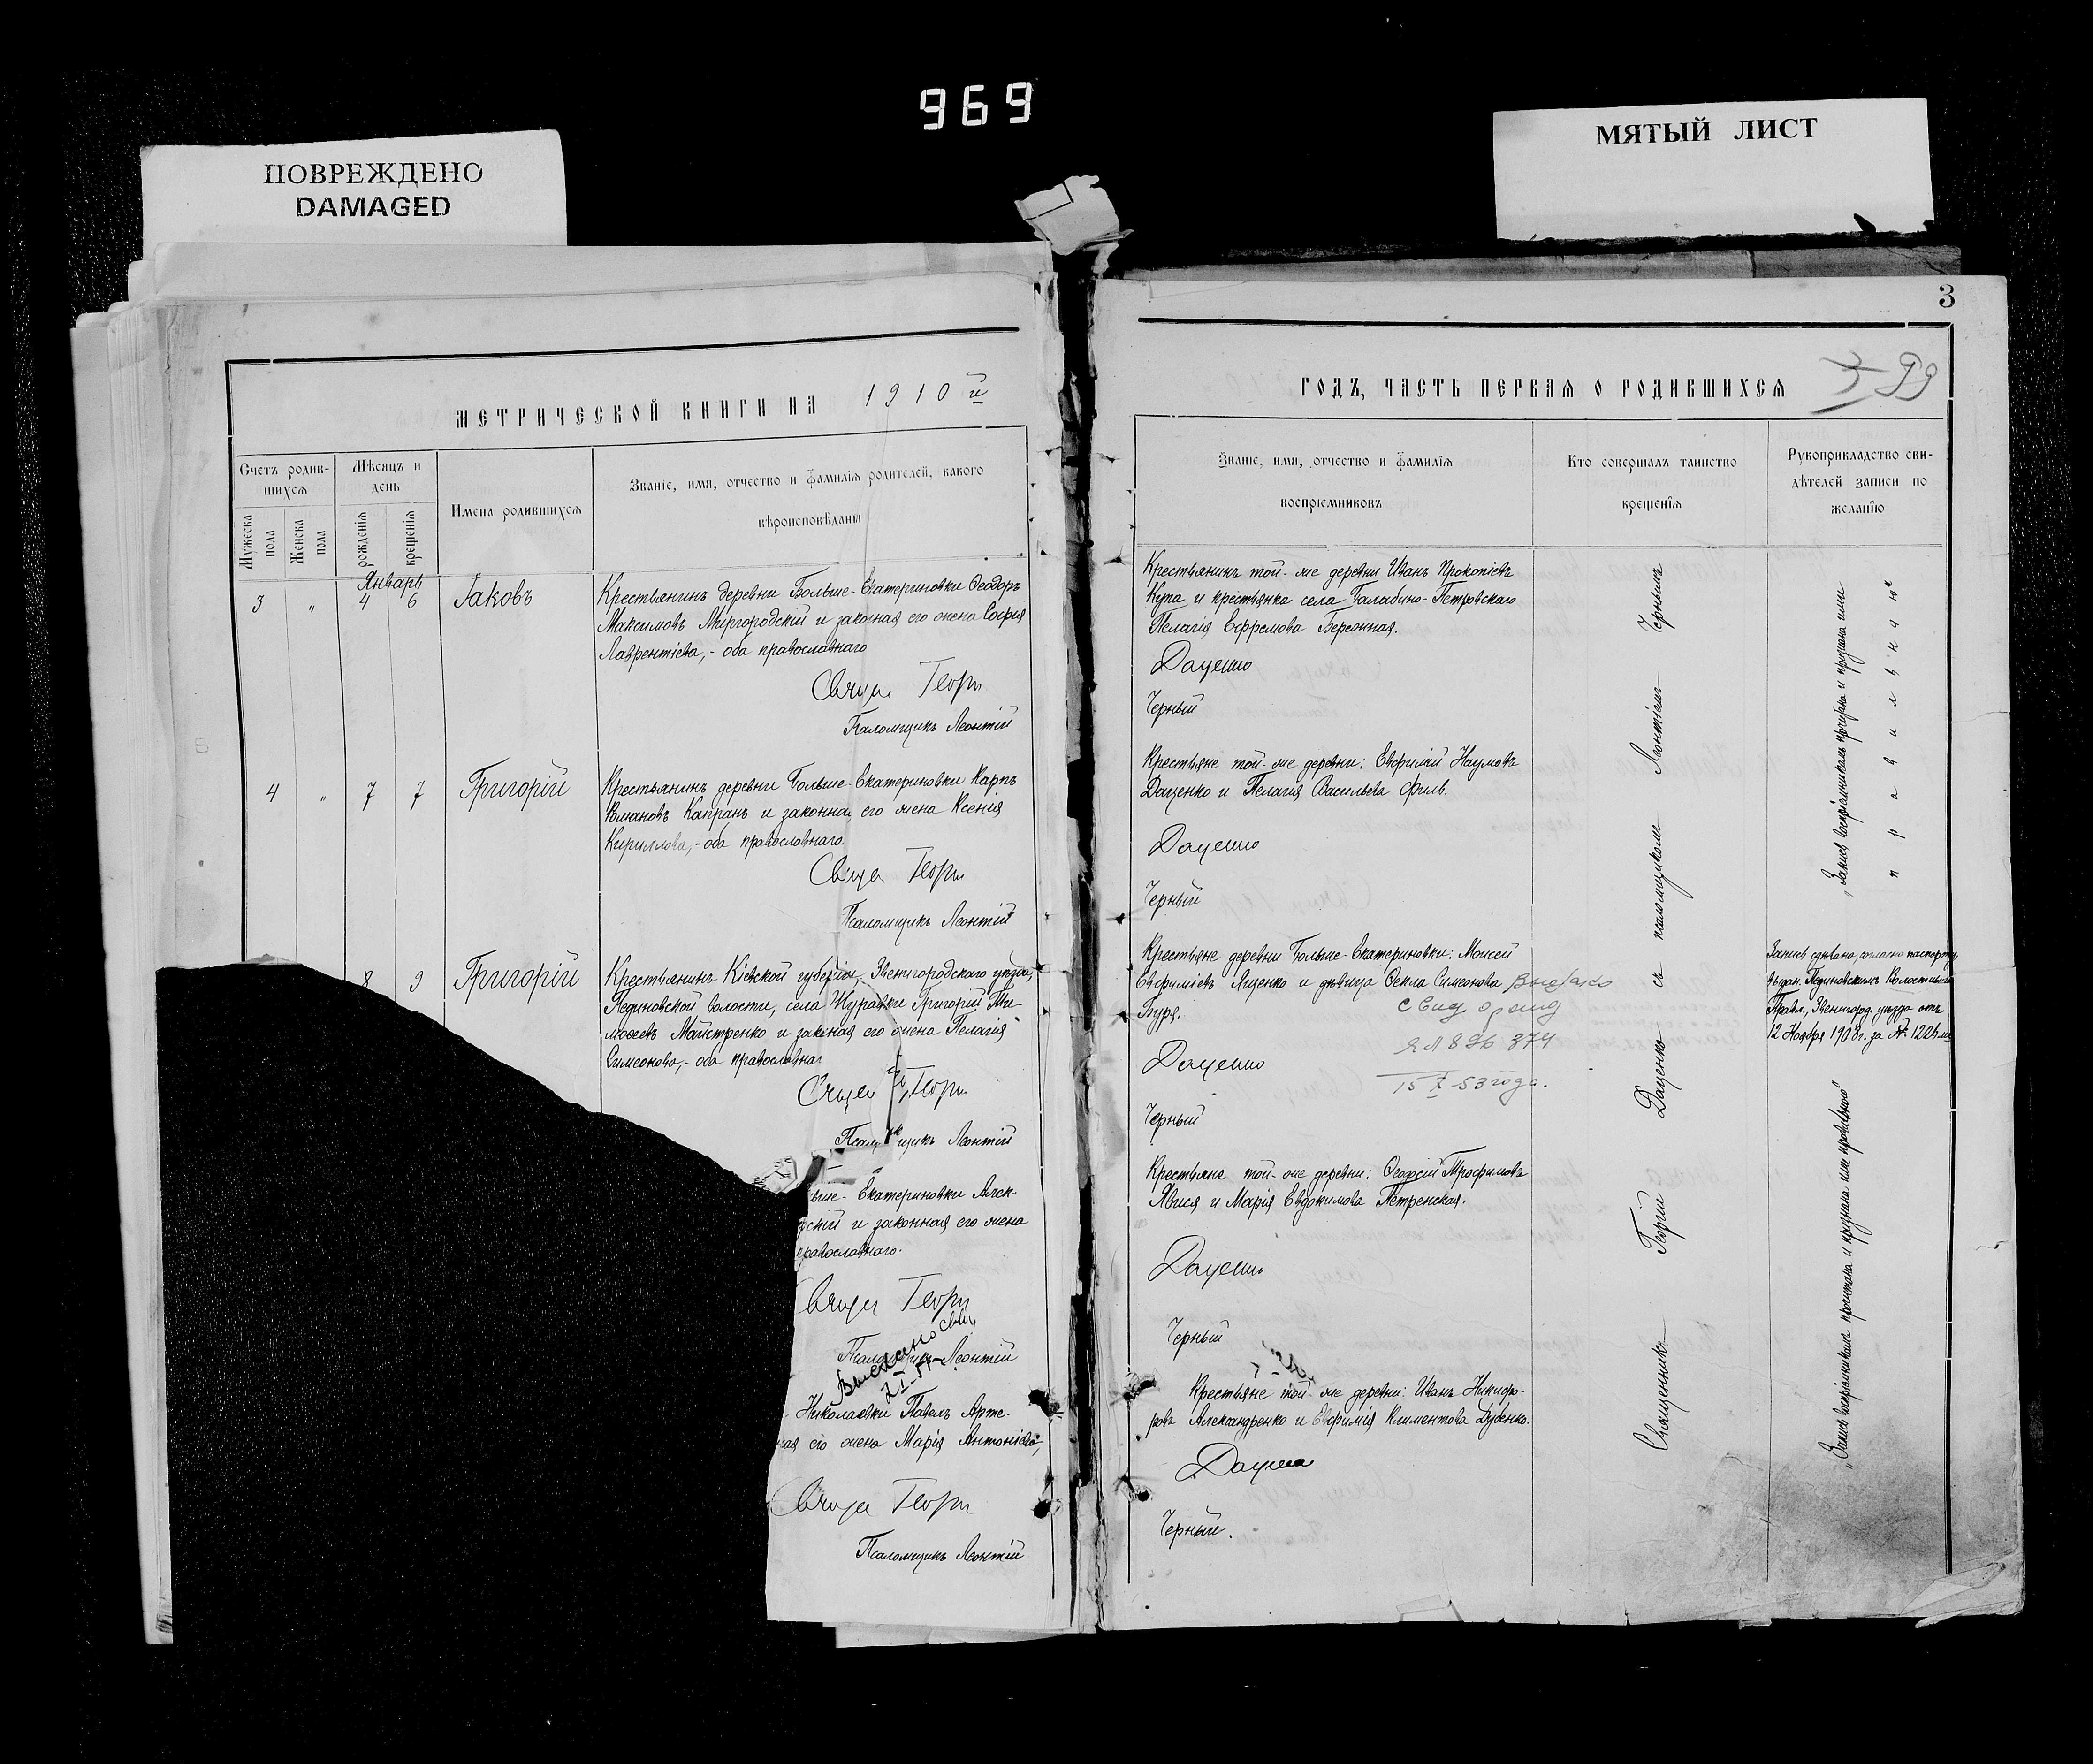 969
ПОВРЕЖДЕНО
DAMAGED
МЯТЫЙ ЛИСТ
МЕТРИЧЕСКОЙ КНИГИ НА 1910 й
Счетъ родив-
шихся
Мѣсяцъ и
день
Имена родившихся
Званіе, имя, отчество и фамилія родителей, какого
вѣроисповѣданія
Мужеска
пола
Женска
пола
рожденія
крещенія
Январь
3 " 4 6 Іаковъ
Крестьянинъ деревни Больше-Екатериновки Ѳеодоръ
Максимовъ Миргородскій и законная его жена Софія
Лаврентіева,- оба православнаго
Свящ. Георг
Псаломщикъ Леонтій
4 " 7 7 Григорій
Крестьянинъ деревни Больше-Екатериновки Карпъ
Романовъ Капранъ и законная его жена Ксенія
Кириллова,- оба православнаго.
Свящ. Георг
Псаломщикъ Леонтій
8 9 Григорій
Крестьянинъ Кіевской губерніи, Звенигородскаго уѣзда,
Пединовской волости, села Журавки Григорій Ти-
моѳеевъ Майстренко и законная его жена Пелагія
Симеонова,- оба православна
Свящ. Георг
Псаломщикъ Леонтій
ьше-Екатериновки Алек-
скій и законная его жена
православнаго.
Свящ Георг
Псаломщикъ Леонтій
Николаевки Павелъ Арте-
ная его жена Марія Антоніева,
Свящ Георг
Псаломщикъ Леонтій
3
3 99
ГОДЪ, ЧАСТЬ ПЕРВАЯ О РОДИВШИХСЯ
Званіе, имя, отчество и фамилія
воспріемниковъ
Кто совершалъ таинство
крещенія
Рукоприкладство сви-
дѣтелей записи по
желанію
Крестьянинъ той-же деревни Иванъ Прокопіевъ
Купа и крестьянка села Голубино-Петровскаго
Пелагія Ефремова Бережная.
Даценко
Черный
Крестьяне той-же деревни: Евфимій Наумовъ
Даценко и Пелагія Васильева Филь.
Даценко
Черный
Крестьяне деревни Больше-Екатериновки: Моисей
Евфиміевъ Яценко и дѣвица Ѳекла Симеонова
Буря.
Выдано
свид о рожд
ЯЛ 8 374
15 X 53 года.
Даценко
Черный
Крестьяне той-же деревни: Георгій Трофимовъ
и Марія Евдокимова Петренская.
Даценко
Черный
Крестьяне той-же деревни: Иванъ Никифо-
ровъ Александренко и Евфимія Климентова Дубенко.
Даценко
Черный.
Священникъ Георгій Даценко съ псаломщикомъ Леонтіемъ Чернымъ
Запись сдѣлана, согласно паспорту,
выдан. Пединовскимъ Волостнымъ
Правл., Звенигород. уѣзда отъ
12 Ноября 1908 г. за № 1226
„Запись воспріемникамъ прочитана и признана ими
правильною"
„Запись воспріемникамъ прочитана и признана ими правильною"